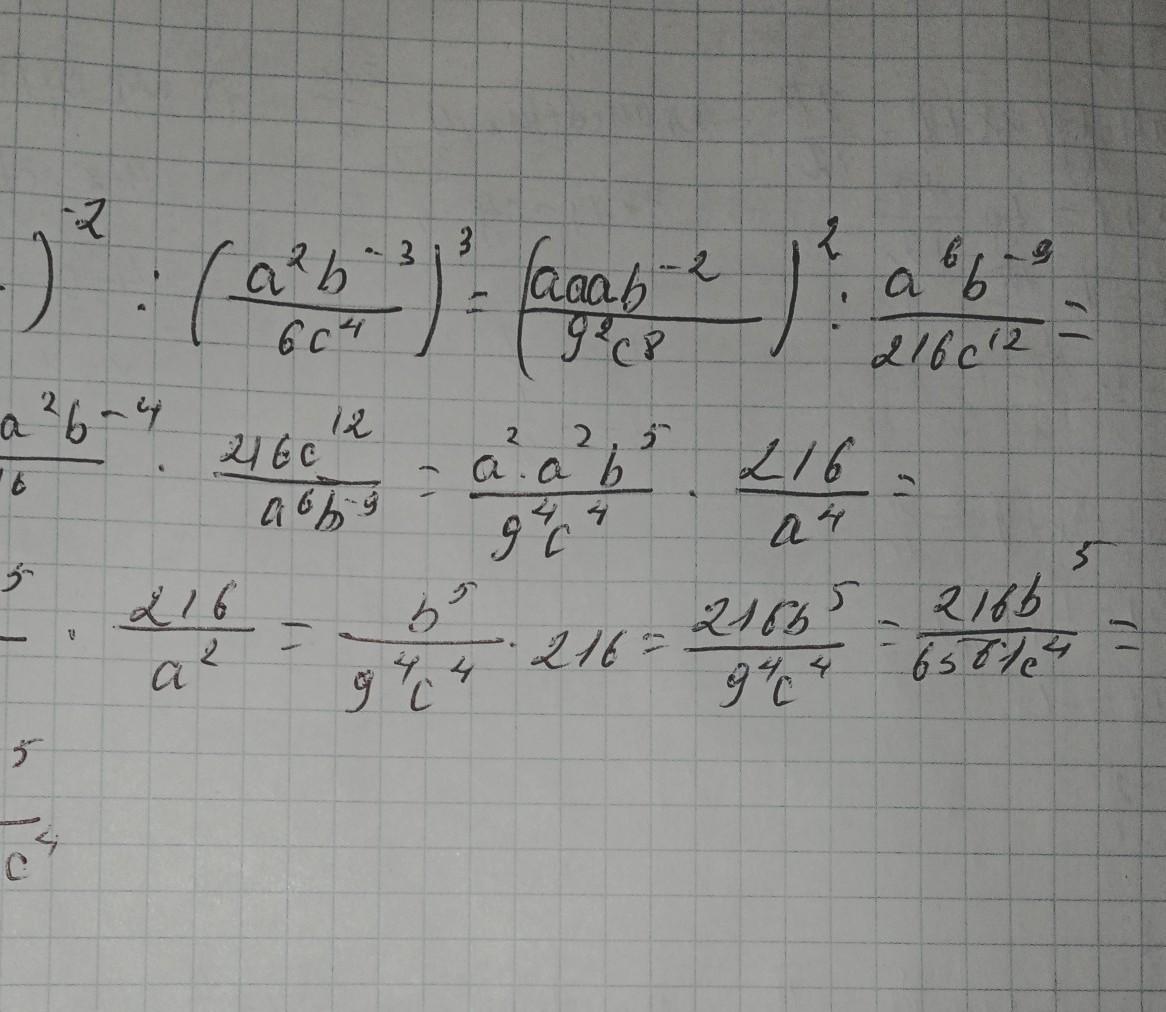 )^{-2} : (\frac{a^2b^{-3}}{6c^4})^3 = (\frac{aaab^{-2}}{9^2c8})^2 : \frac{a^6b^{-9}}{216c^{12}} =
\frac{a^2b^{-4}}{16} \cdot \frac{216c^{12}}{a^6b^{-9}} = \frac{a^2 \cdot a^2b^5}{9^4c^4} \cdot \frac{216}{a^4} =
5 \cdot \frac{216}{a^2} = \frac{b^5}{9^4c^4} \cdot 216 = \frac{216b^5}{9^4c^4} = \frac{216b^5}{6561c^4} =
\frac{5}{c^4}